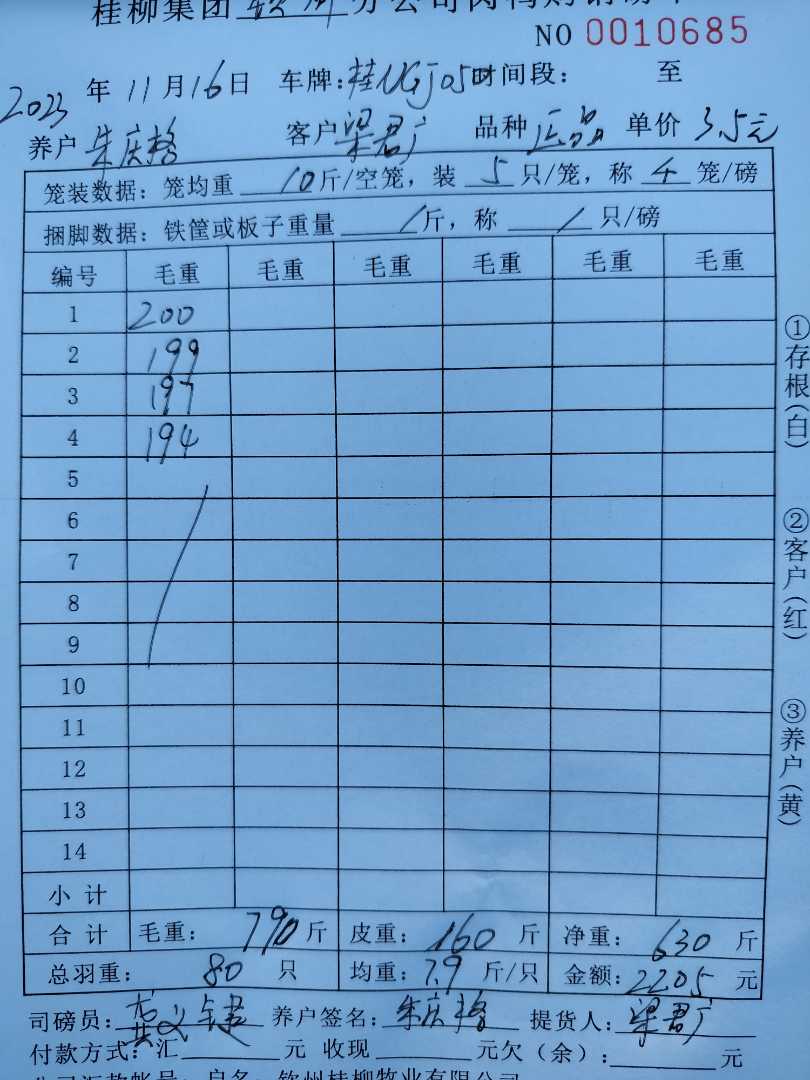 桂柳集团 钦州 分公司肉鸭购销磅单
NO 0010685
2023 年 11 月 16 日 车牌: 桂NGJ05 时间段: 至
养户 朱庆格 客户 梁君广 品种 正品 单价 3.5元
笼装数据: 笼均重 10 斤/空笼, 装 5 只/笼, 称 4 笼/磅
捆脚数据: 铁筐或板子重量 / 斤, 称 / 只/磅
编号 毛重 毛重 毛重 毛重 毛重 毛重
1 200
2 199
3 197
4 194
5
6
7
8
9
10
11
12
13
14
小计
合计 毛重: 790 斤 皮重: 160 斤 净重: 630 斤
总羽重: 80 只 均重: 7.9 斤/只 金额: 2205 元
司磅员: 养户签名: 朱庆格 提货人: 梁君广
付款方式: 汇 元 收现 元欠(余): 元
公司汇款帐号: 户名: 钦州桂柳牧业有限公司
①存根(白)
②客户(红)
③养户(黄)